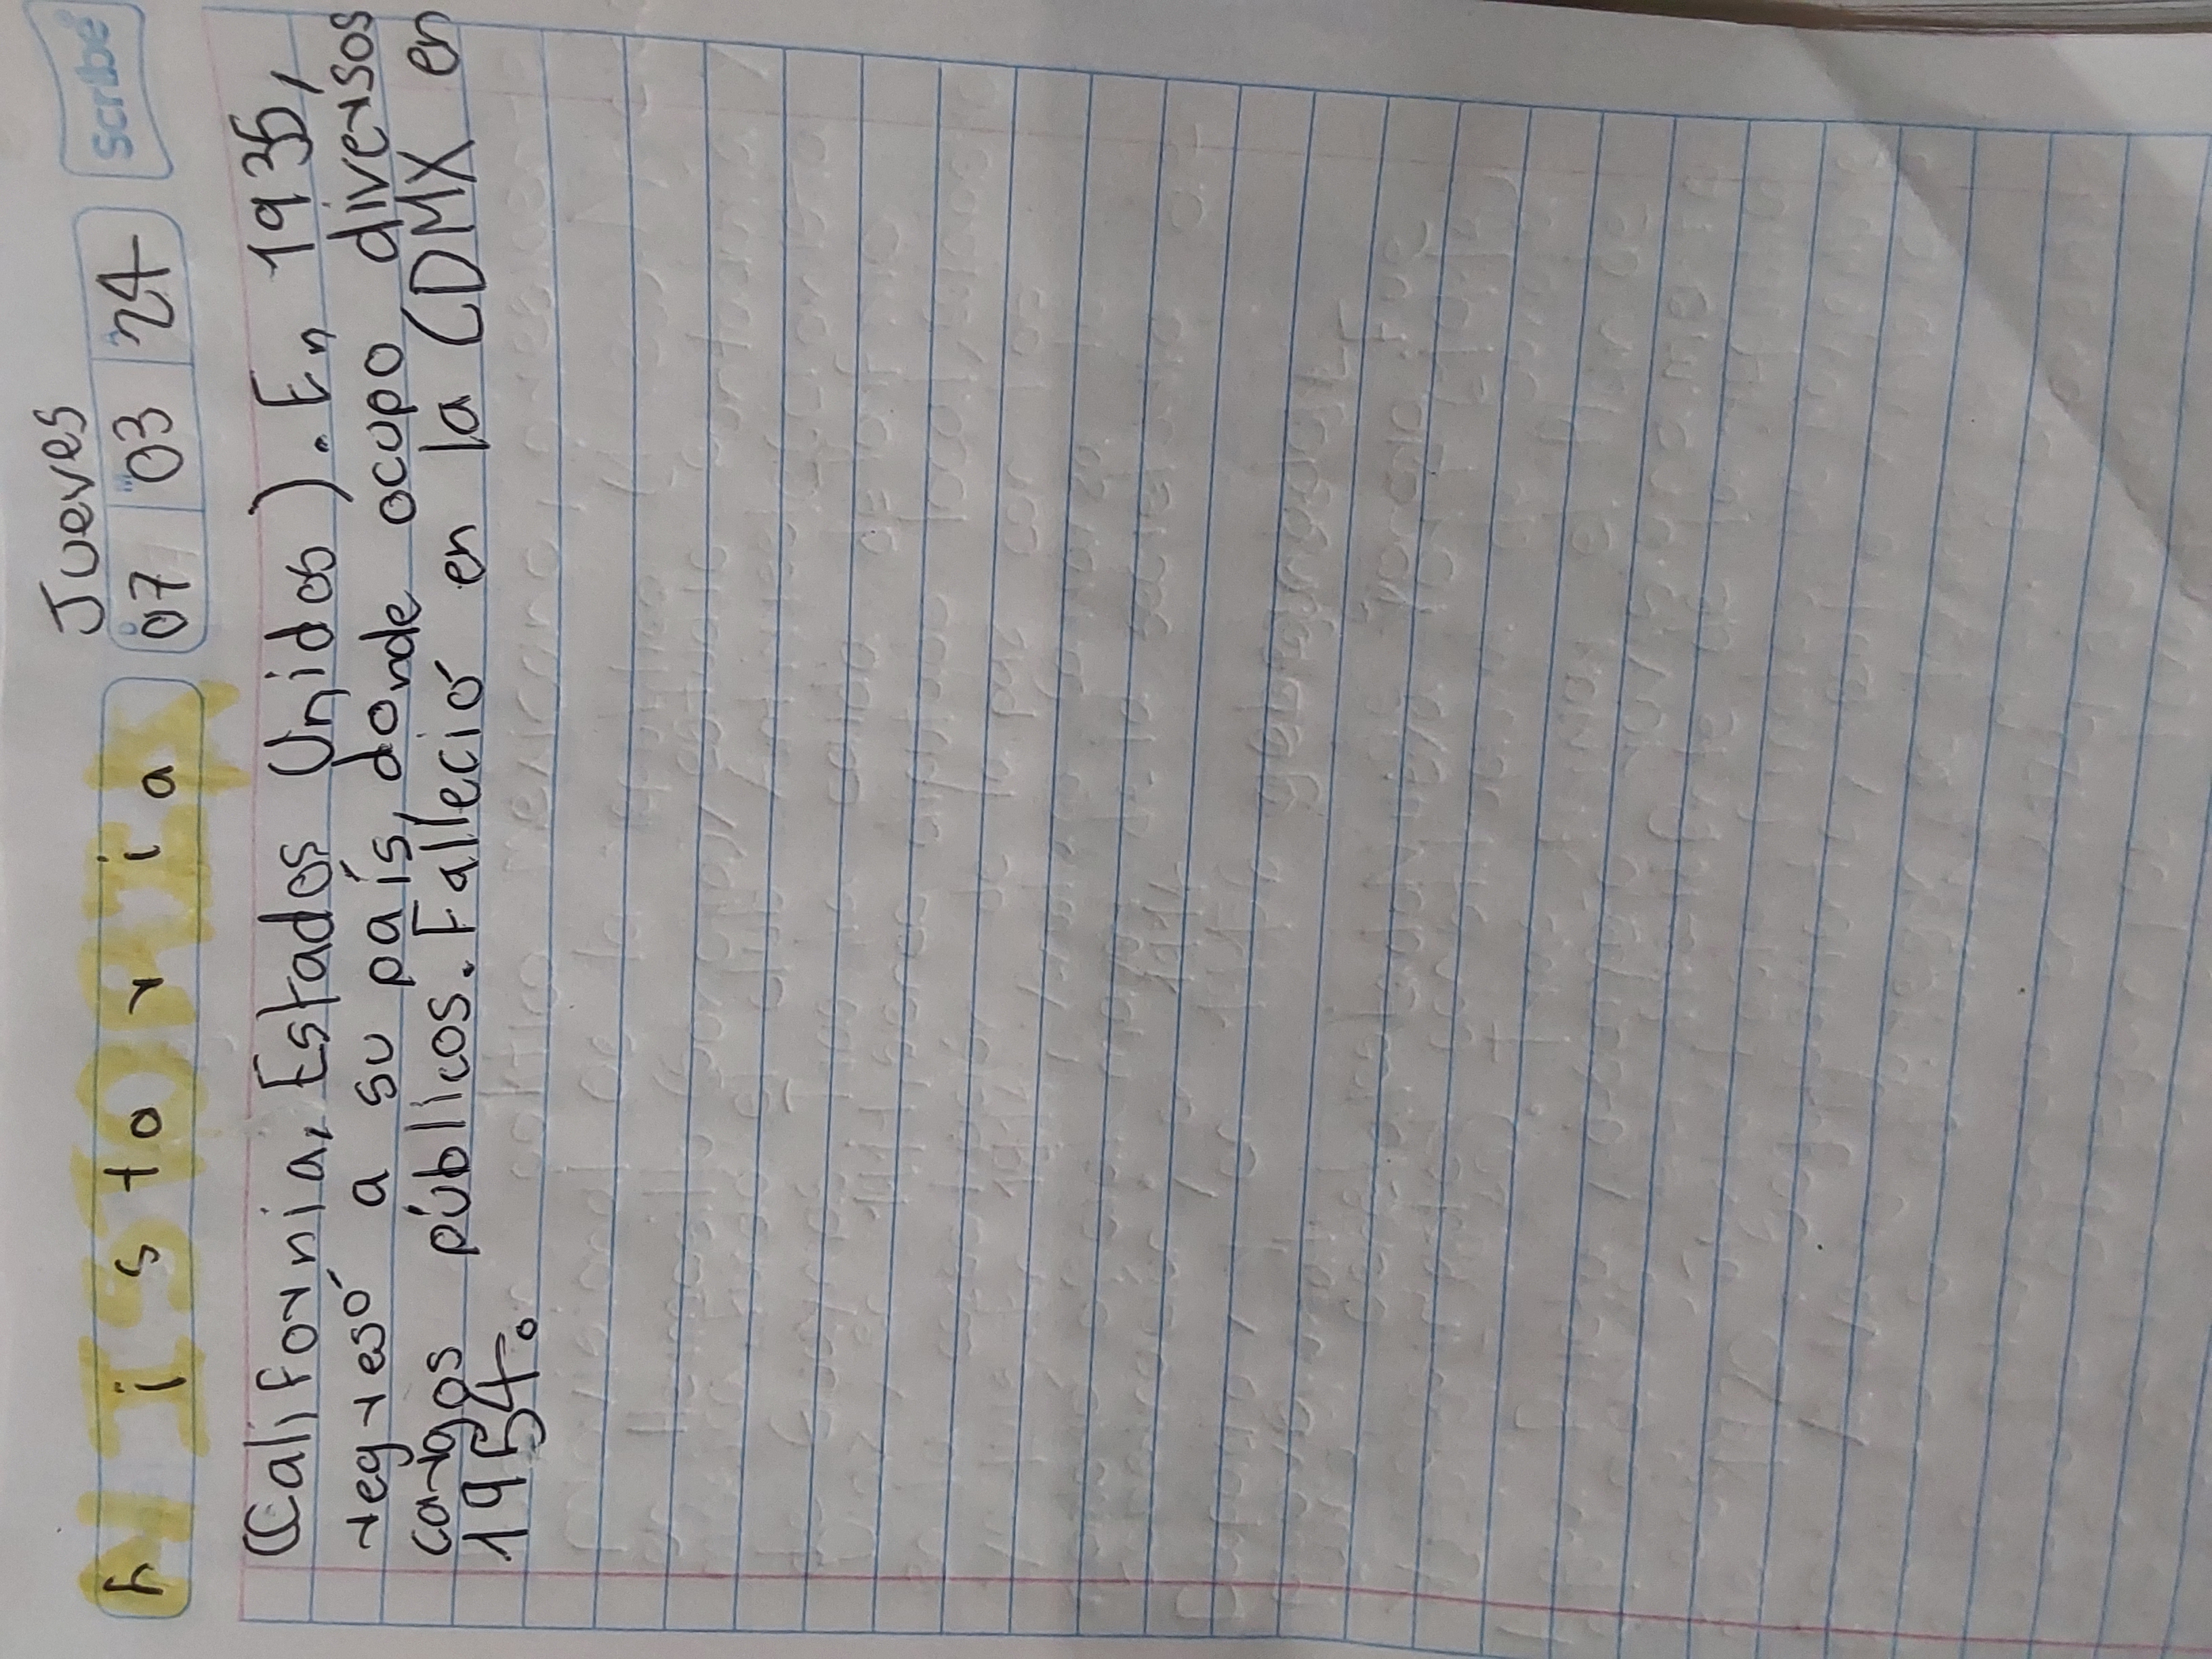 Jueves
historia 07 03 24 Scribe
(California, Estados Unidos). En 1935,
regresó a su país, donde ocupo diversos
cargos públicos. Falleció en la CDMX en
1954.